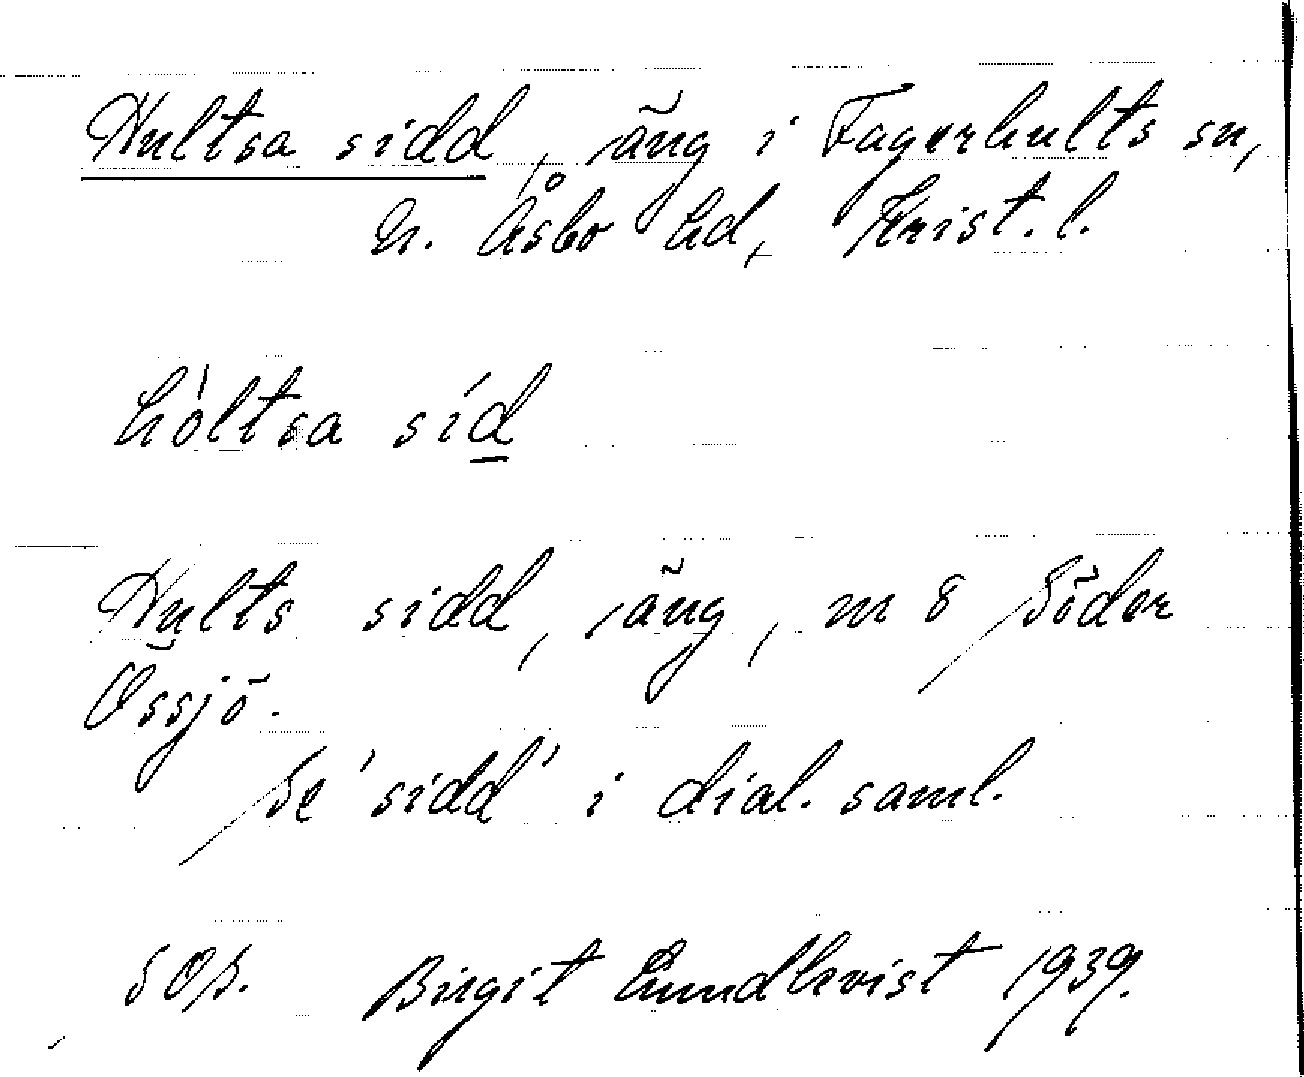 Hultsa sidd, äng i Fagerhults sn,
N. Åsbo hd, Krist. l.
hóltsa síd
Hults sidd, äng, m 8 Söder
Össjö.
Se 'sidd' i dial. saml.
Birgit Lundkvist 1939.